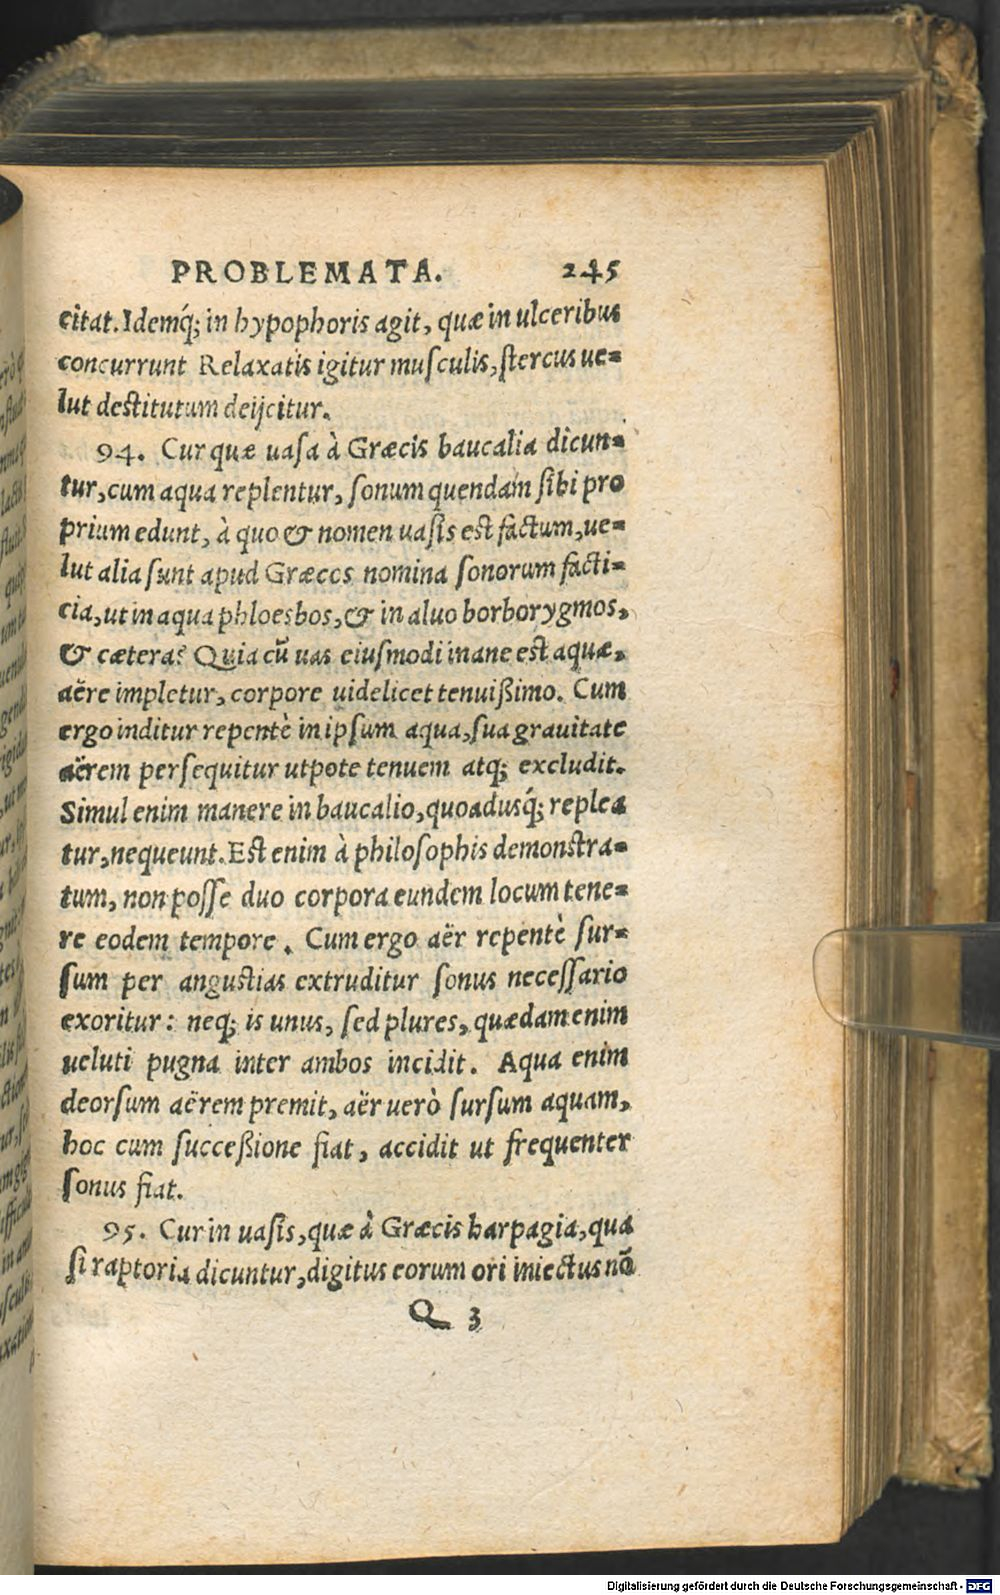 PROBLEMATA. 245
citat. Idemq́; in hypophoris agit, quæ in ulceribus
concurrunt Relaxatis igitur musculis, stercus ue=
lut destitutum deijcitur.
94. Cur quæ uasa à Græcis baucalia dicun=
tur, cum aqua replentur, sonum quendam sibi pro
prium edunt, à quo & nomen uasis est factum, ue=
lut alia sunt apud Græcos nomina sonorum facti=
cia, ut in aqua phloesbos, & in aluo borborygmos,
& cætera? Quia cũ uas eiusmodi inane est aquæ,
aëre impletur, corpore uidelicet tenuißimo. Cum
ergo inditur repentè in ipsum aqua, sua grauitate
aërem persequitur utpote tenuem atq; excludit.
Simul enim manere in baucalio, quoadusq́; replea
tur, nequeunt. Est enim à philosophis demonstra=
tum, non posse duo corpora eundem locum tene=
re eodem tempore. Cum ergo aër repentè sur=
sum per angustias extruditur sonus necessario
exoritur: neq; is unus, sed plures, quædam enim
ueluti pugna inter ambos incidit. Aqua enim
deorsum aërem premit, aër uerò sursum aquam,
hoc cum succeßione fiat, accidit ut frequenter
sonus fiat.
95. Cur in uasis, quæ à Græcis harpagia, qua
si raptoria dicuntur, digitus eorum ori iniectus nõ
Q 3
Digitalisierung gefördert durch die Deutsche Forschungsgemeinschaft - DFG